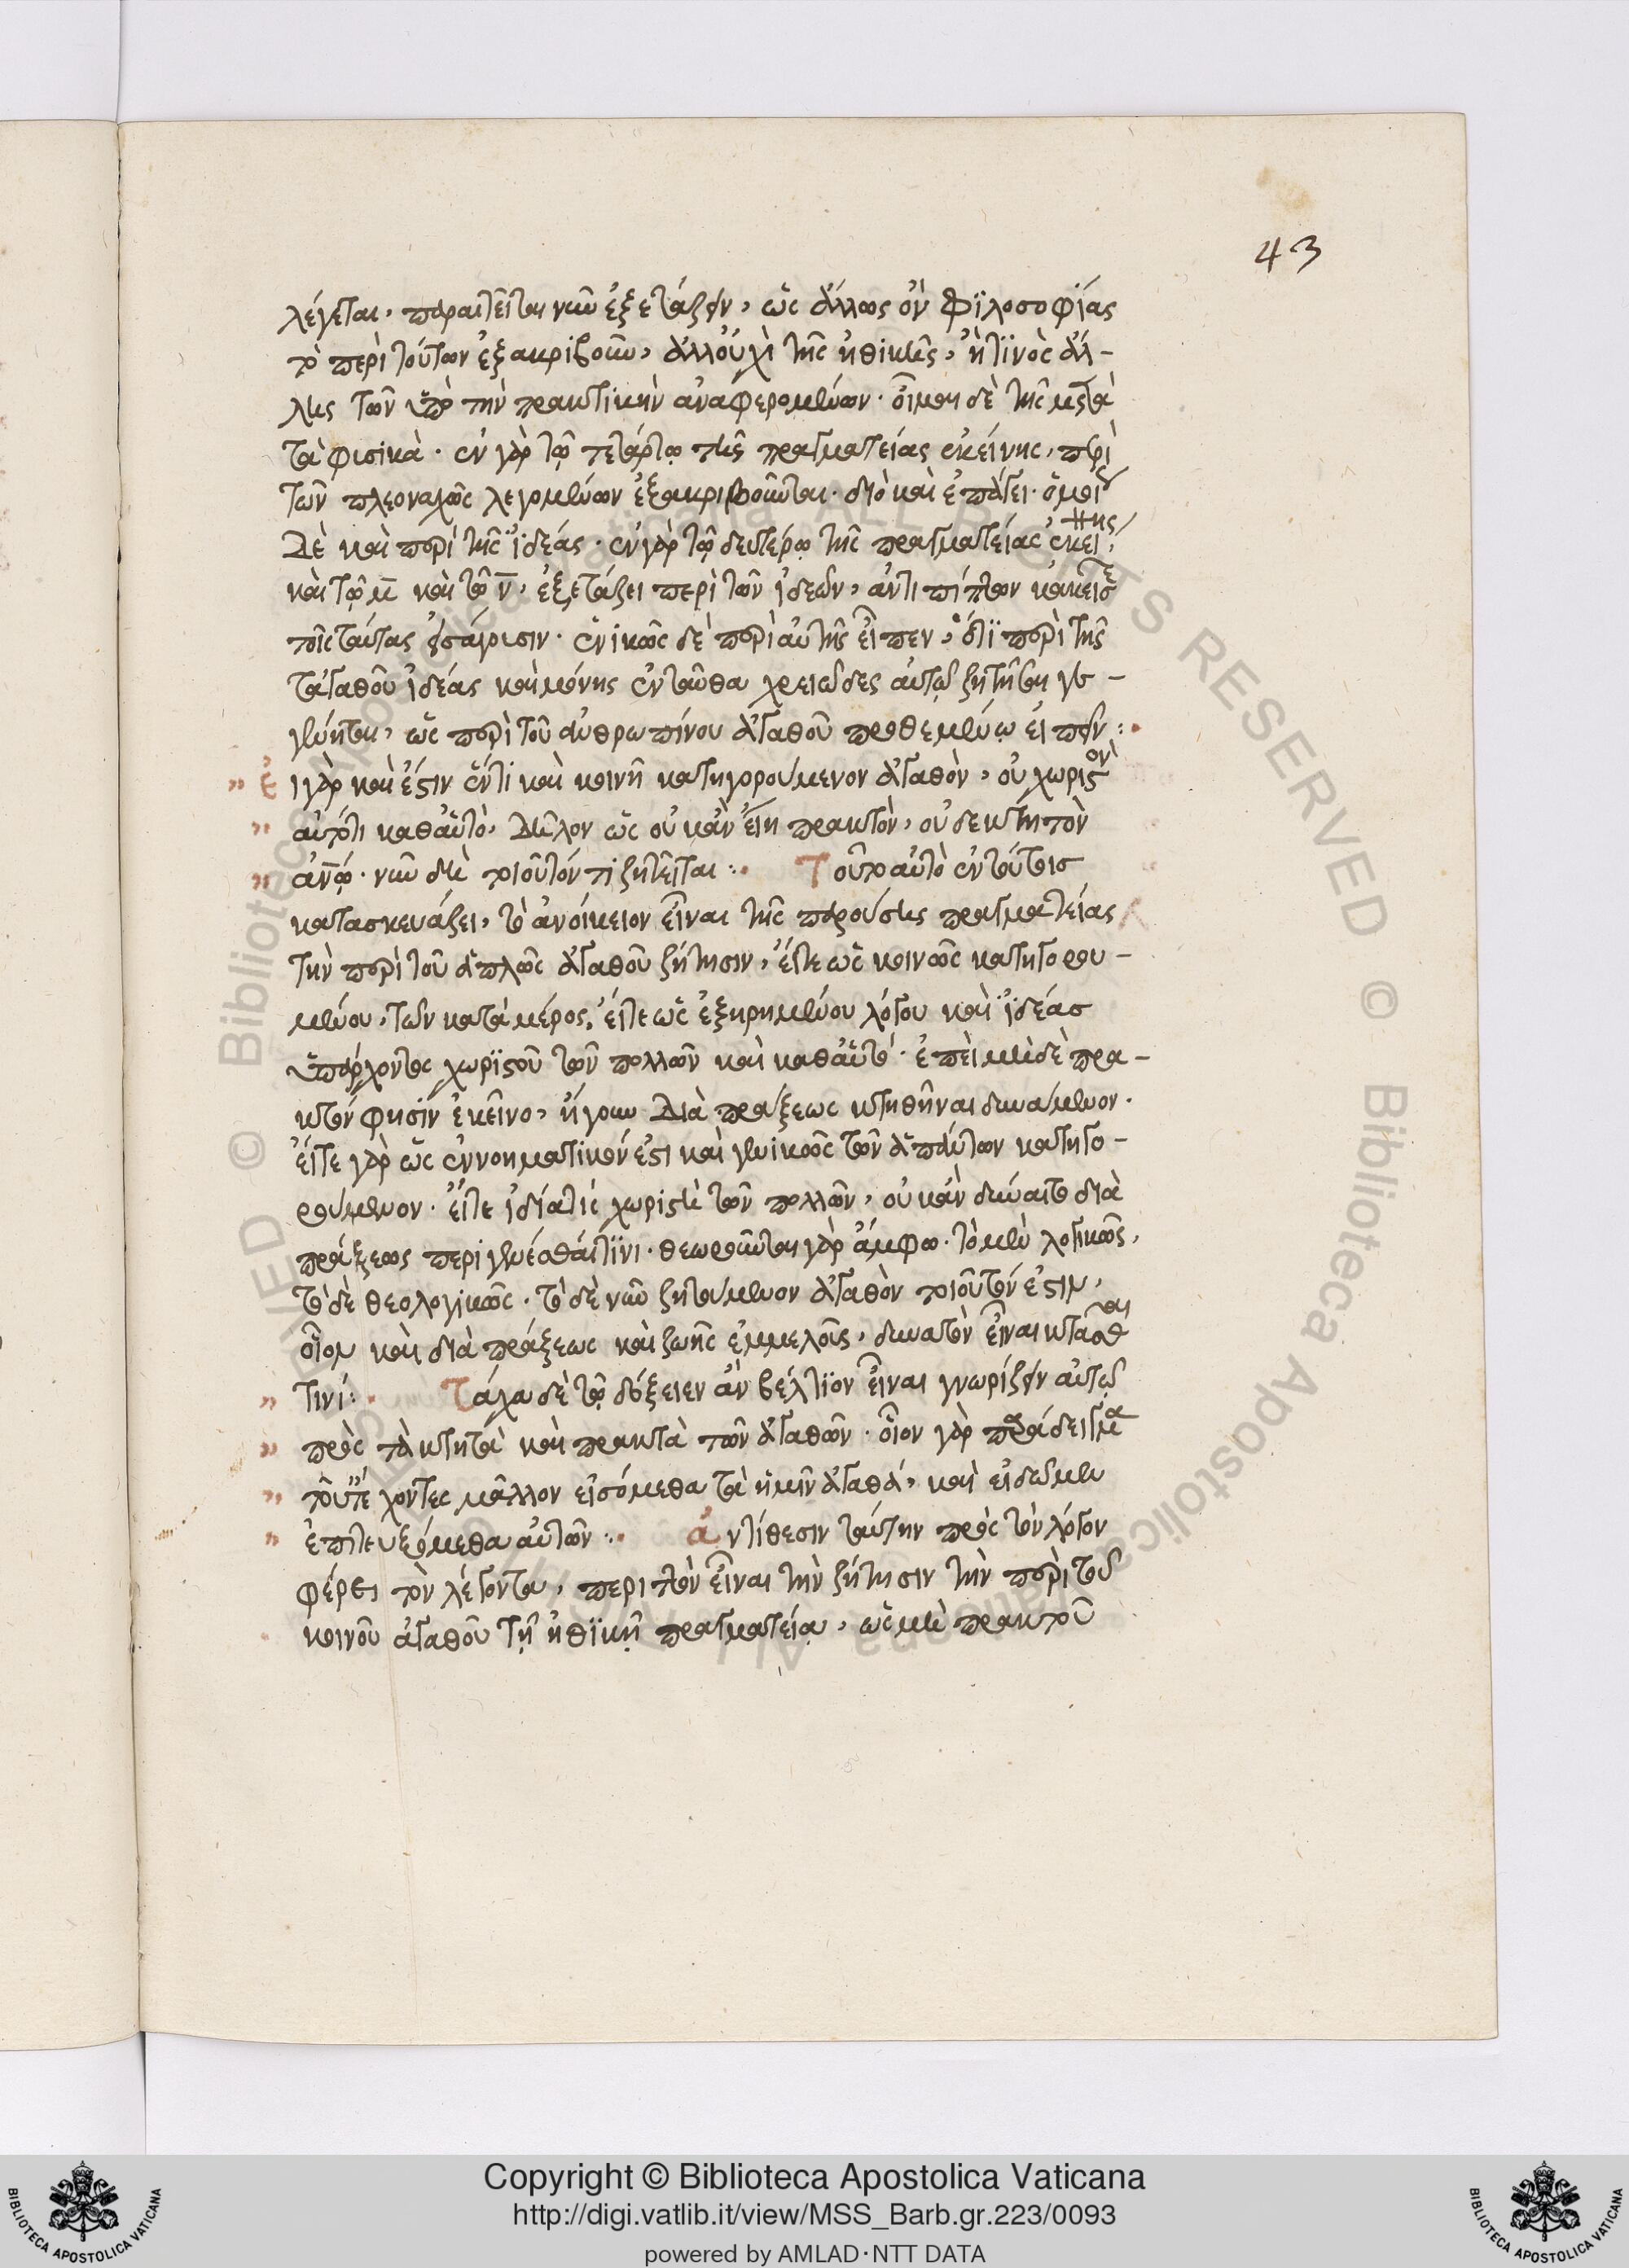 43
λέγεται, παραιτεῖται νῦν ἐξετάζειν, ὡς ἄλλως ὂν φϊλοσοφίας
τὸ περὶ τούτων ἐξακριβοῦν, ἀλλοὐχὶ τῆς ἠθικῆς, ἤ τϊνὸς ἄλ-
λης τῶν ὑπὸ τὴν πρακτικὴν ἀναφερομένων. οἶμαι δὲ τῆς μετὰ
τὰ φισικὰ. ἐν γὰρ τῷ τετάρτῳ τῆς πραγματείας ἐκείνης, περὶ
τῶν πλεοναχῶς λεγομένων ἐξακριβοῦνται. διὸ καὶ ἐπάγει. ὁμοί
Δὲ καὶ περὶ τῆς ἰδέας. ἐν γὰρ τῷ δευτέρῳ τῆς πραγματείας ἐκείνης,
καὶ τῷ μ̅ καὶ τῷ ν̅, ἐξετάζει περὶ τῶν ἰδεῶν, ἀντιπίπτων κἀκεῖσε
τοῖς ταύτας εἰσάγουσιν. ἑνικῶς δὲ περὶ αὐτῆς εἶπεν, ὅτϊ περὶ τῆς
τἀγαθοῦ ἰδέας καὶ μόνης ἐνταῦθα χρειῶδες αὐτῷ ζητῆσαι γε-
γένηται, ὡς περὶ τοῦ ἀνθρωπίνου ἀγαθοῦ προθεμένῳ εἰπεῖν :.
" Ἐι γὰρ καὶ ἐστιν ἕν τι καὶ κοινῆ κατηγορούμενον ἀγαθὸν, οὐ χωριστὸν
" αὐτότι καθ᾽ αὑτὸ, Δῆλον ὡς οὐκ ἂν εἴη πρακτὸν, οὐδε κτητὸν
" ἀν̅ῳ. νῦν δὴ τοιοῦτόν τι ζητεῖται :. Τοῦτο αὐτὸ ἐν τούτοισ
κατασκευάζει, τὸ ἀνοίκειον εἶναι τῆς παρούσης πραγματείας
τὴν περὶ τοῦ ἁπλῶς ἀγαθοῦ ζήτησιν, εἴτε ὡς κοινῶς κατηγορου-
μένου, τῶν κατὰ μέρος, εἴτε ὡς ἐξῃρημένου λόγου καὶ ἰδέασ
ὑπάρχοντος χωρϊστοῦ τῶν πολλῶν καὶ καθ᾽ αὑτό. ἐπεὶ μὴδὲ πρα-
κτόν φησίν ἐκεῖνο, ἤγουν Διὰ πράξεως κτηθῆναι δυνάμενον.
εἴτε γὰρ ὡς ἐννοηματικόν ἐστι καὶ γενικῶς τῶν ἁπάντων κατηγο-
ρούμενον. εἴτε ἰδέα τίς χωριστὴ τῶν πολλῶν, οὐκ ἂν δύναιτο διὰ
πράξεως περιγενέσθαι τϊνι. θεωροῦνται γὰρ ἄμφω. τὸ μὲν λογικῶς,
τὸ δὲ θεολογικῶς. τὸ δὲ νῦν ζητούμενον ἀγαθὸν τοιοῦτόν ἐστιν,
οἷον καὶ διὰ πράξεως καὶ ζωῆς ἐμμελοῦς, δυνατὸν εἶναι κτᾶσθαι
" τινί :. Τάχα δέ τῳ δόξειεν ἂν βέλτϊον εἶναι γνωρίζειν αὐτὸ
" πρὸς τὰ κτητὰ καὶ πρακτὰ τῶν ἀγαθῶν. οἷον γὰρ παράδειγμα
" τοῦτ᾽ ἔχοντες μᾶλλον εἰσόμεθα τὰ ἡμῖν ἀγαθά, καὶ εἰδῶμεν
" ἐπιτευξόμεθα αὐτῶν :. ἀντίθεσιν ταύτην πρὸς τὸν λόγον
φέρει τὸν λέγοντα, περιττὸν εἶναι τὴν ζήτησιν τὴν περὶ τοῦ
κοινοῦ ἀγαθοῦ τῇ ἠθϊκῇ πραγματείᾳ, ὡς μὴ πρακτοῦ
Copyright © Biblioteca Apostolica Vaticana
http://digi.vatlib.it/view/MSS_Barb.gr.223/0093
powered by AMLAD·NTT DATA
BIBLIOTECA APOSTOLICA VATICANA
BIBLIOTECA APOSTOLICA VATICANA